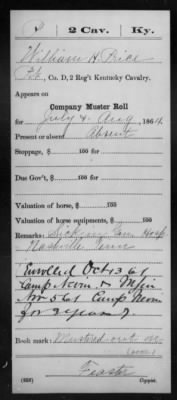 P | 2 Cav. | Ky.
William H. Price
Pvt., Co. D, 2 Reg't Kentucky Cavalry.
Appears on
Company Muster Roll
for July & Aug, 1864.
Present or absent Absent
Stoppage, $ 100 for
Due Gov't, $ 100 for
Valuation of horse, $ 100
Valuation of horse equipments, $ 100
Remarks: Sick in Gen Hosp
Nashville Tenn
Enrolled Oct 13 61
Camp Nevin & M in
Nov 5 61 Camp Nevin
for 3 years
Book mark: Mustered out
(over)
(858)
Copyist.